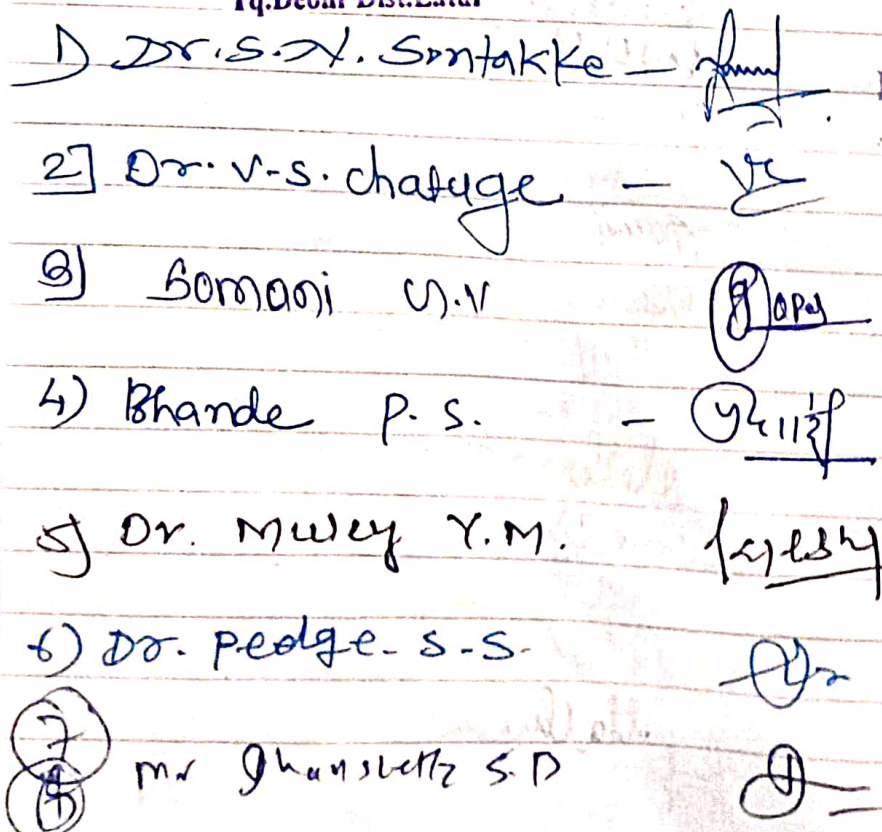 Tq.Deoni Dist.Latur
1) Dr. S. N. Sontakke -
2] Dr. V-S. chatuge -
3) Somani G.V Gopal
4) Bhande P. S. -
5] Dr. Muley Y.M.
6) Dr. Pedge- S-S-
7
8 Mr Ghansette S.D